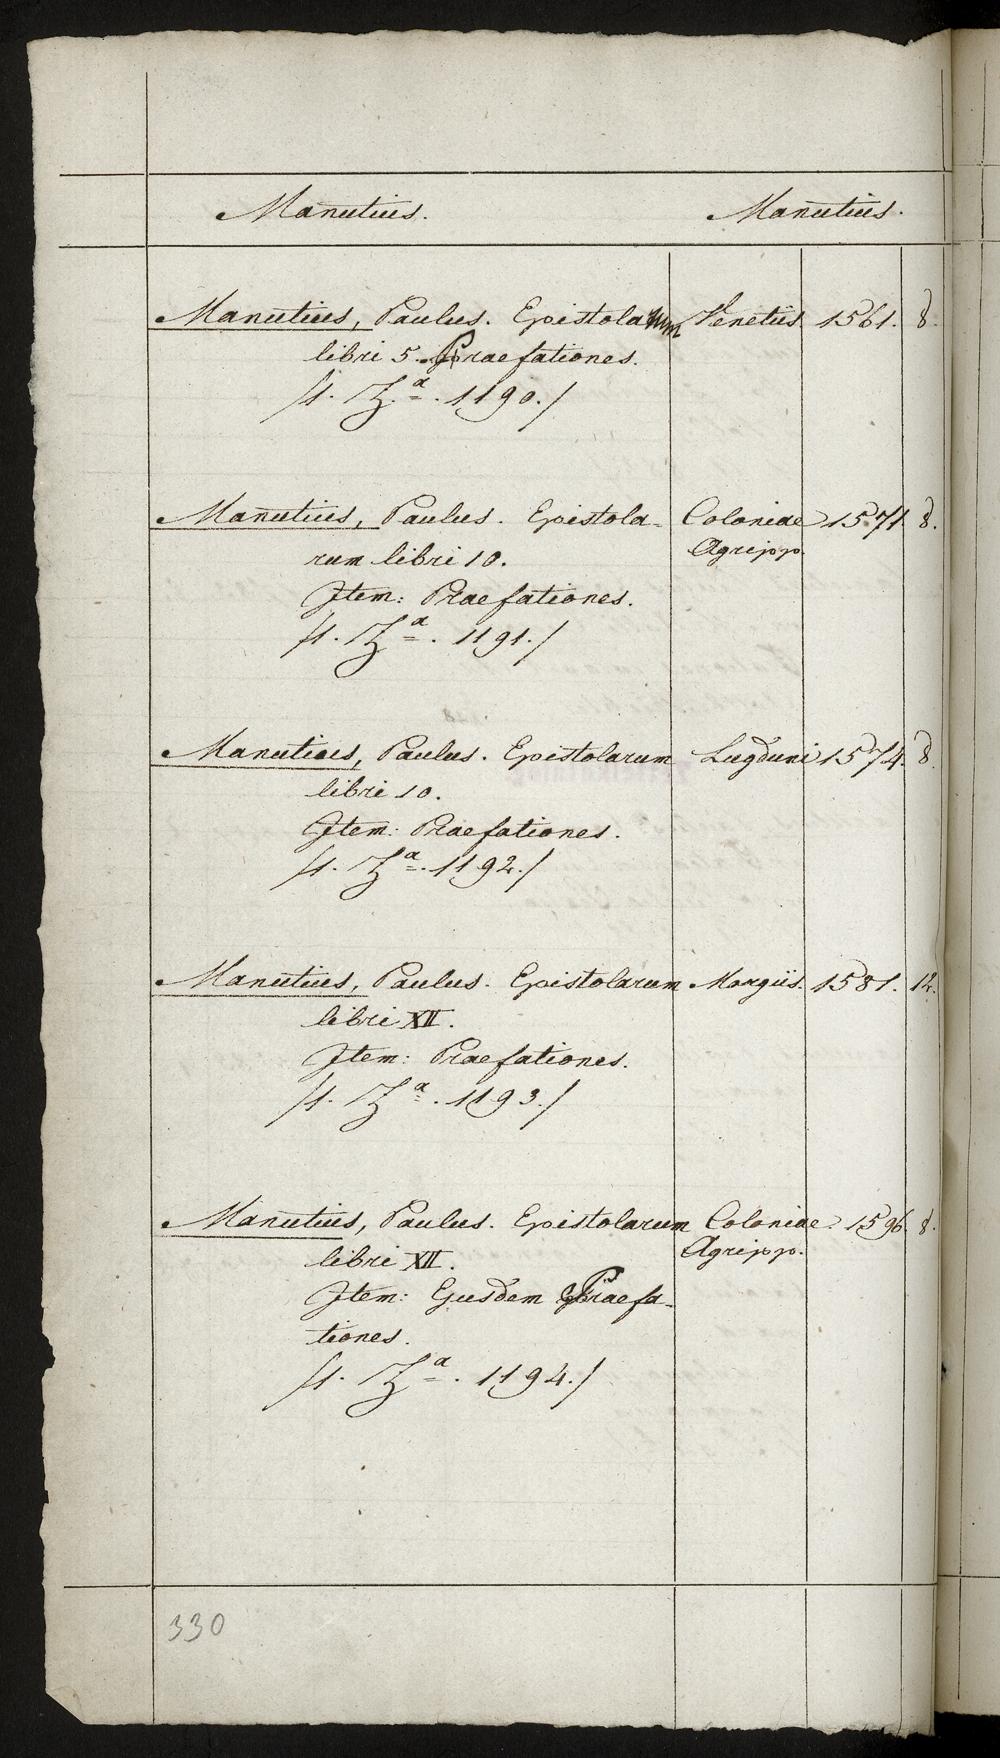 Manutius. Manutius.
Manutius, Paulus. Epistolarum Venetiis 1561. 8.
libri 5. Praefationes.
/1. Z.ª. 1190./
Manutius, Paulus. Epistola- Coloniae 1571. 8.
rum libri 10. Agripp.
Item: Praefationes.
/1. Zª. 1191./
Manutius, Paulus. Epistolarum Lugduni 1574. 8.
libri 10.
Item: Praefationes.
/1. Zª. 1192./
Manutius, Paulus. Epistolarum Morgiis. 1581. 12.
libri XII.
Item: Praefationes.
/1. Zª. 1193./
Manutius, Paulus. Epistolarum Coloniae 1596. 8.
libri XII. Agripp.
Item: Ejusdem Praefa-
tiones.
/1. Zª. 1194./
330